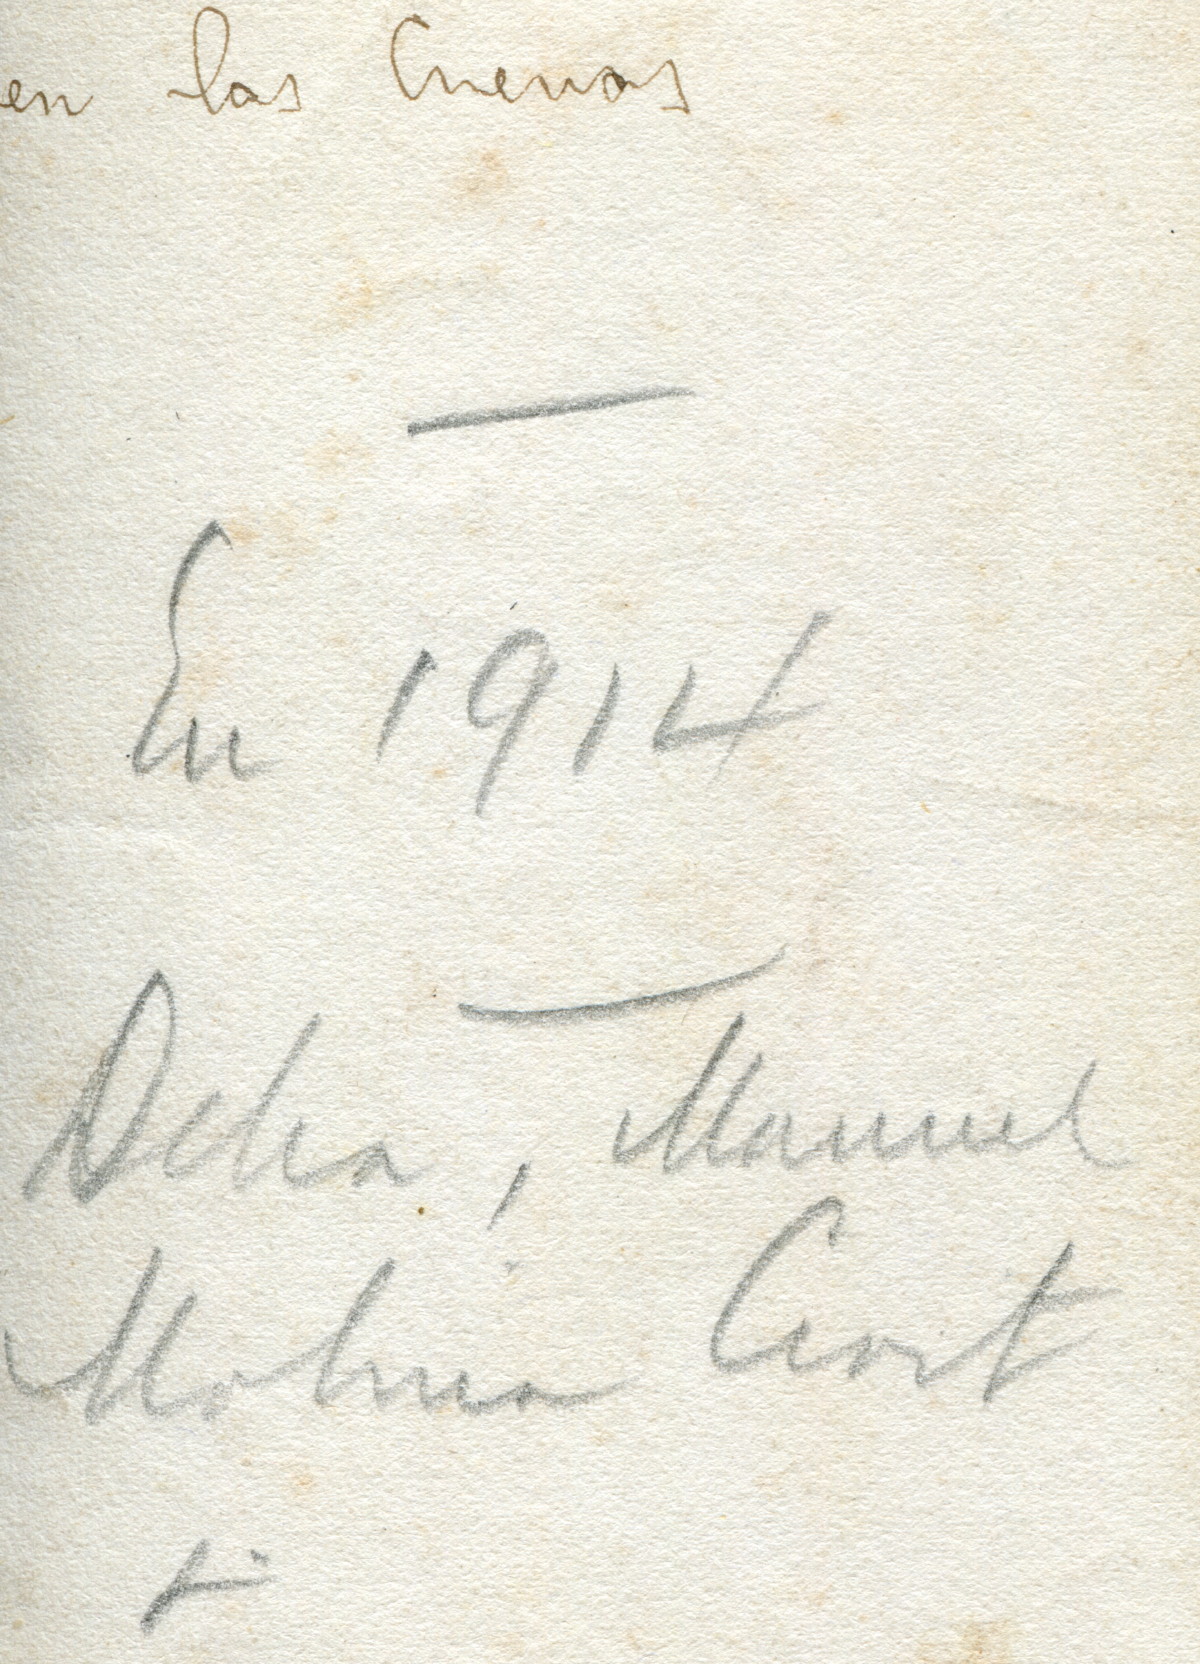 en las Cuevas
En 1914
Delia, Manuel
Molina